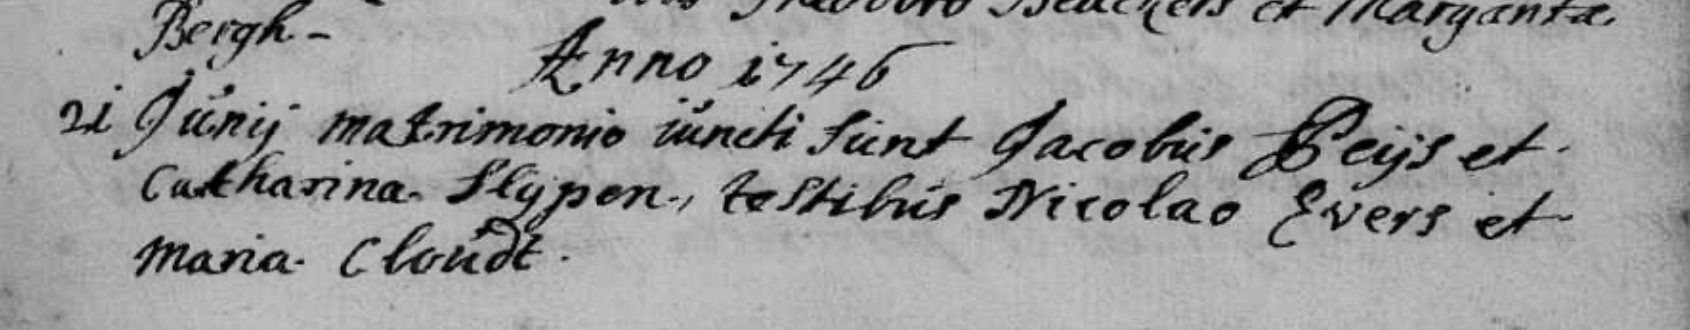 Theodoro Beuckers et Margarita
Bergh-
Anno 1746
21 Junij matrimonio iuncti sunt Jacobus Peijs et
Catharina Slypen, testibus Nicolao Evers et
Maria Cloudt.